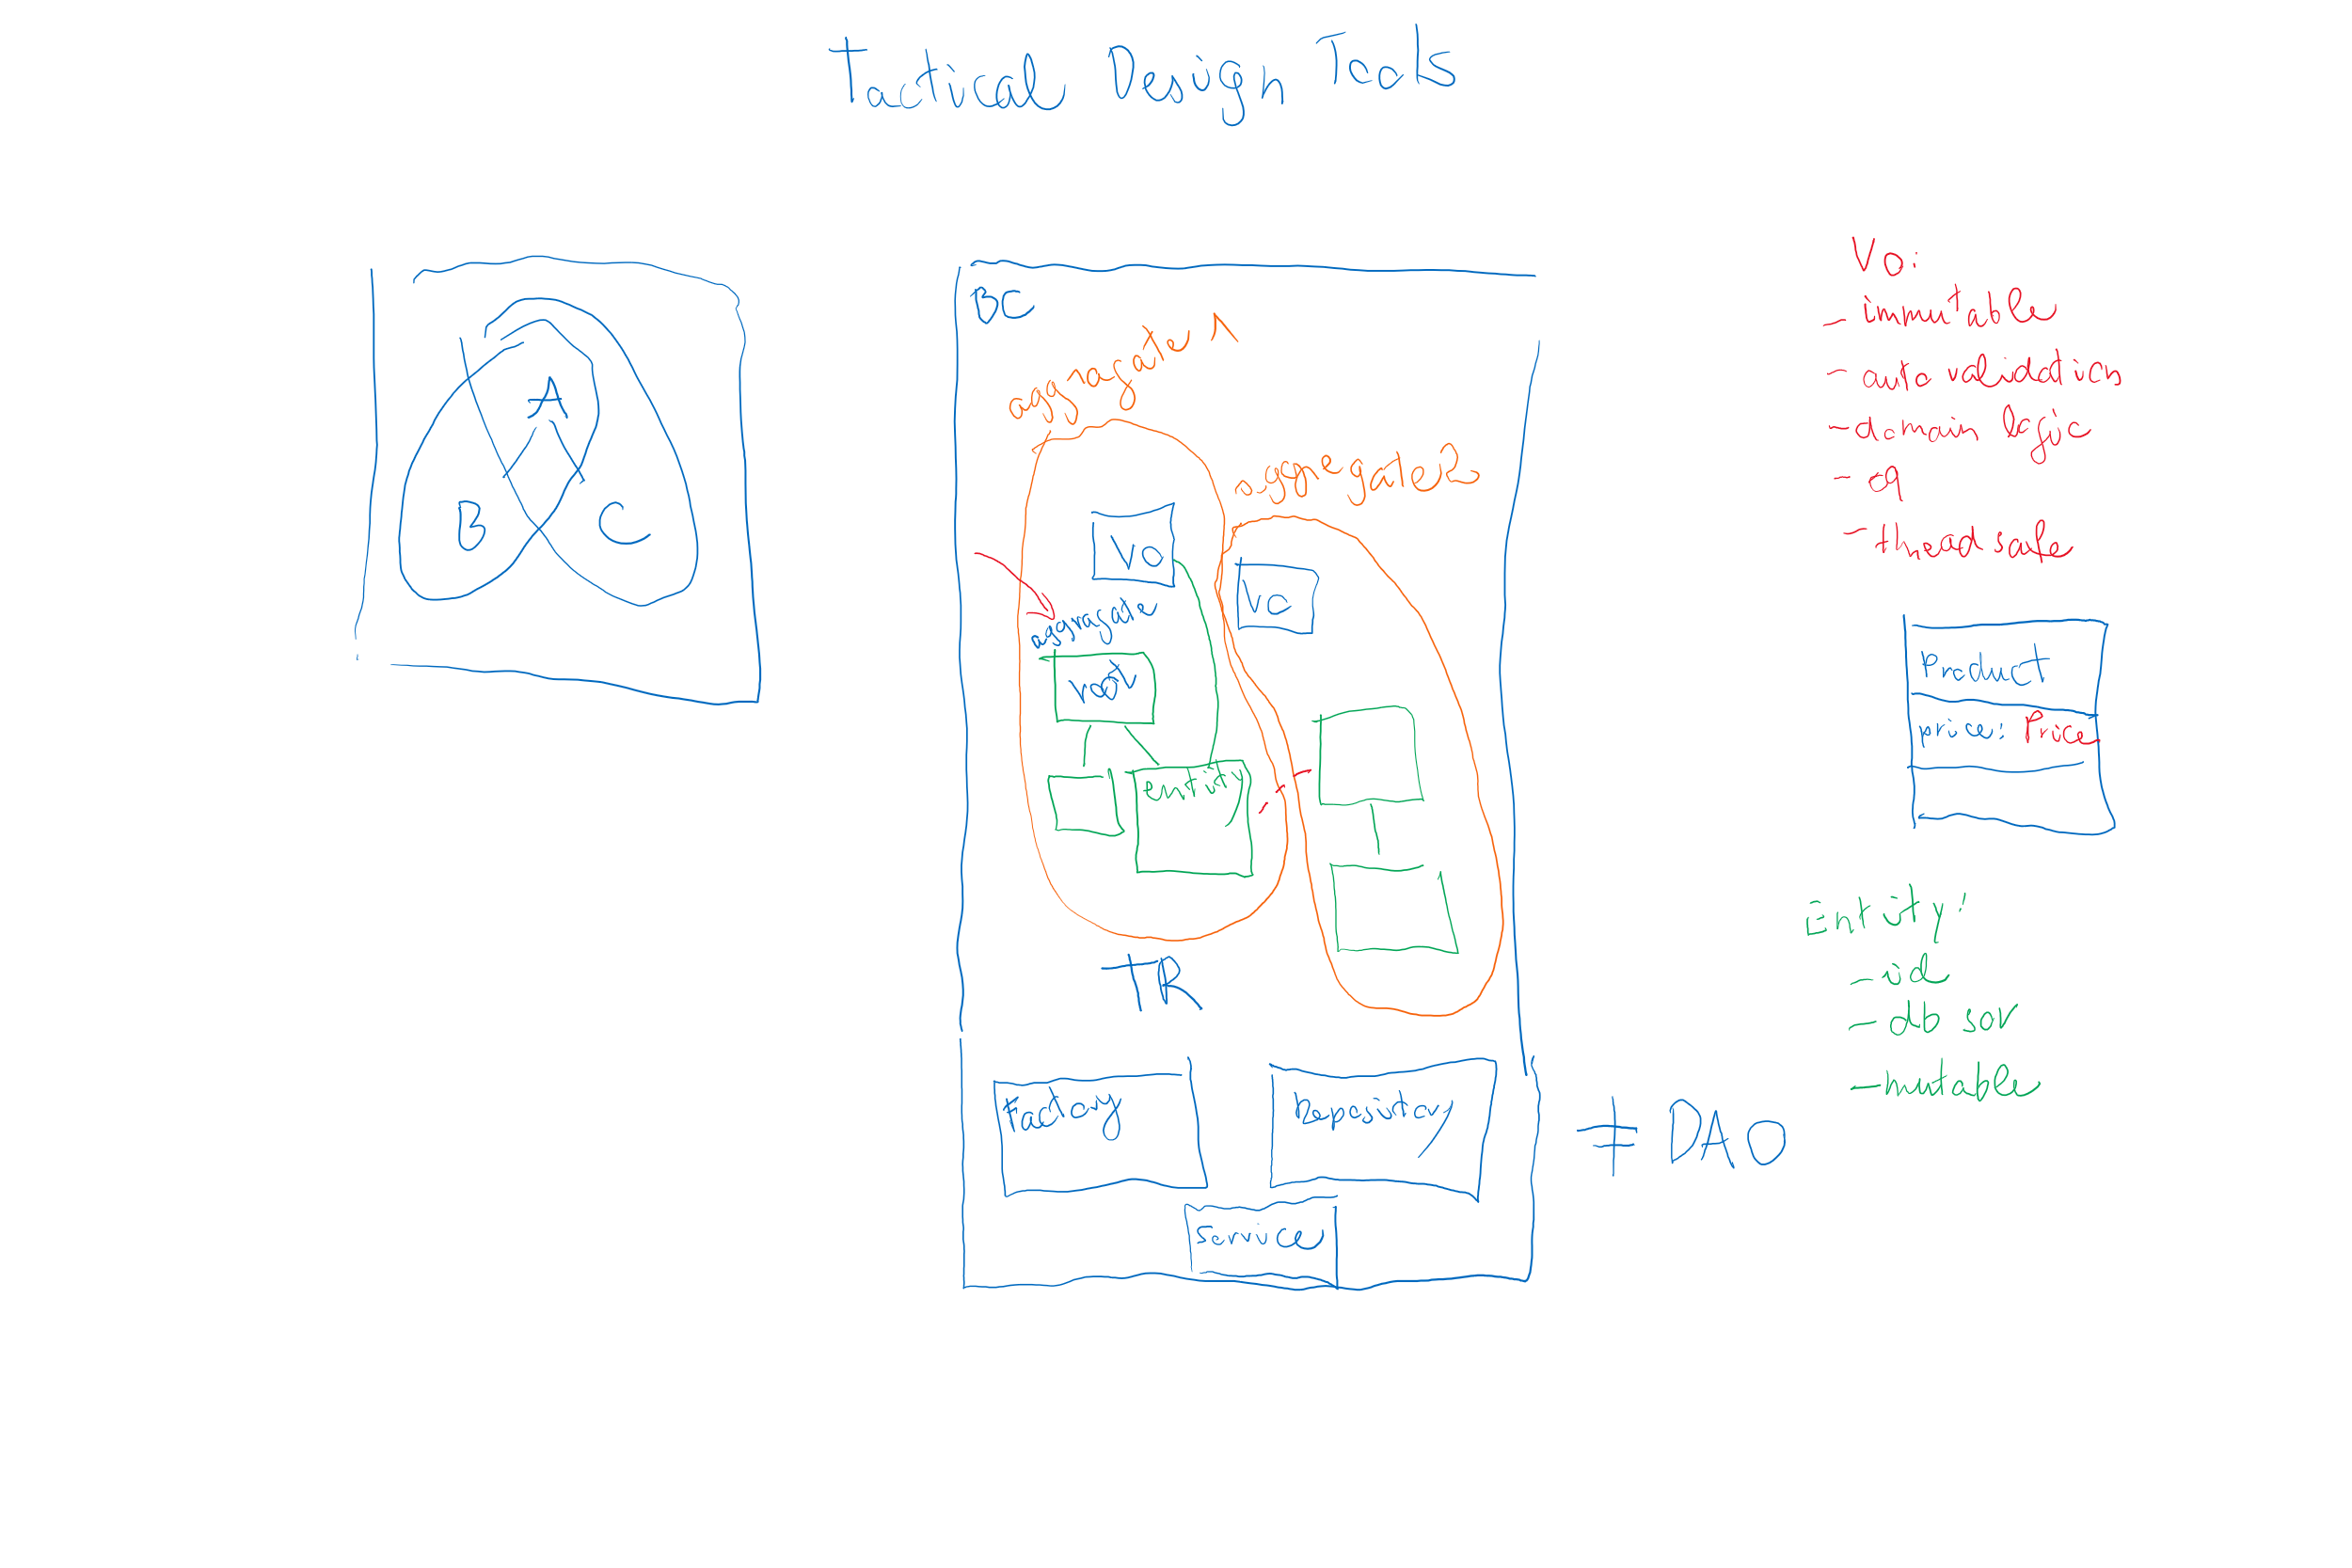 Tactical Design Tools
A
B
C
BC
aggregate 1
aggregate 2
VO
VO
aggregate
root
entity
TR
Factory
Repository
Service
≠ DAO
VO:
- immutable
- auto validation
- domain logic
- eq
- thread safe
Product
price: Price
Entity:
- id
- db sor
- mutable